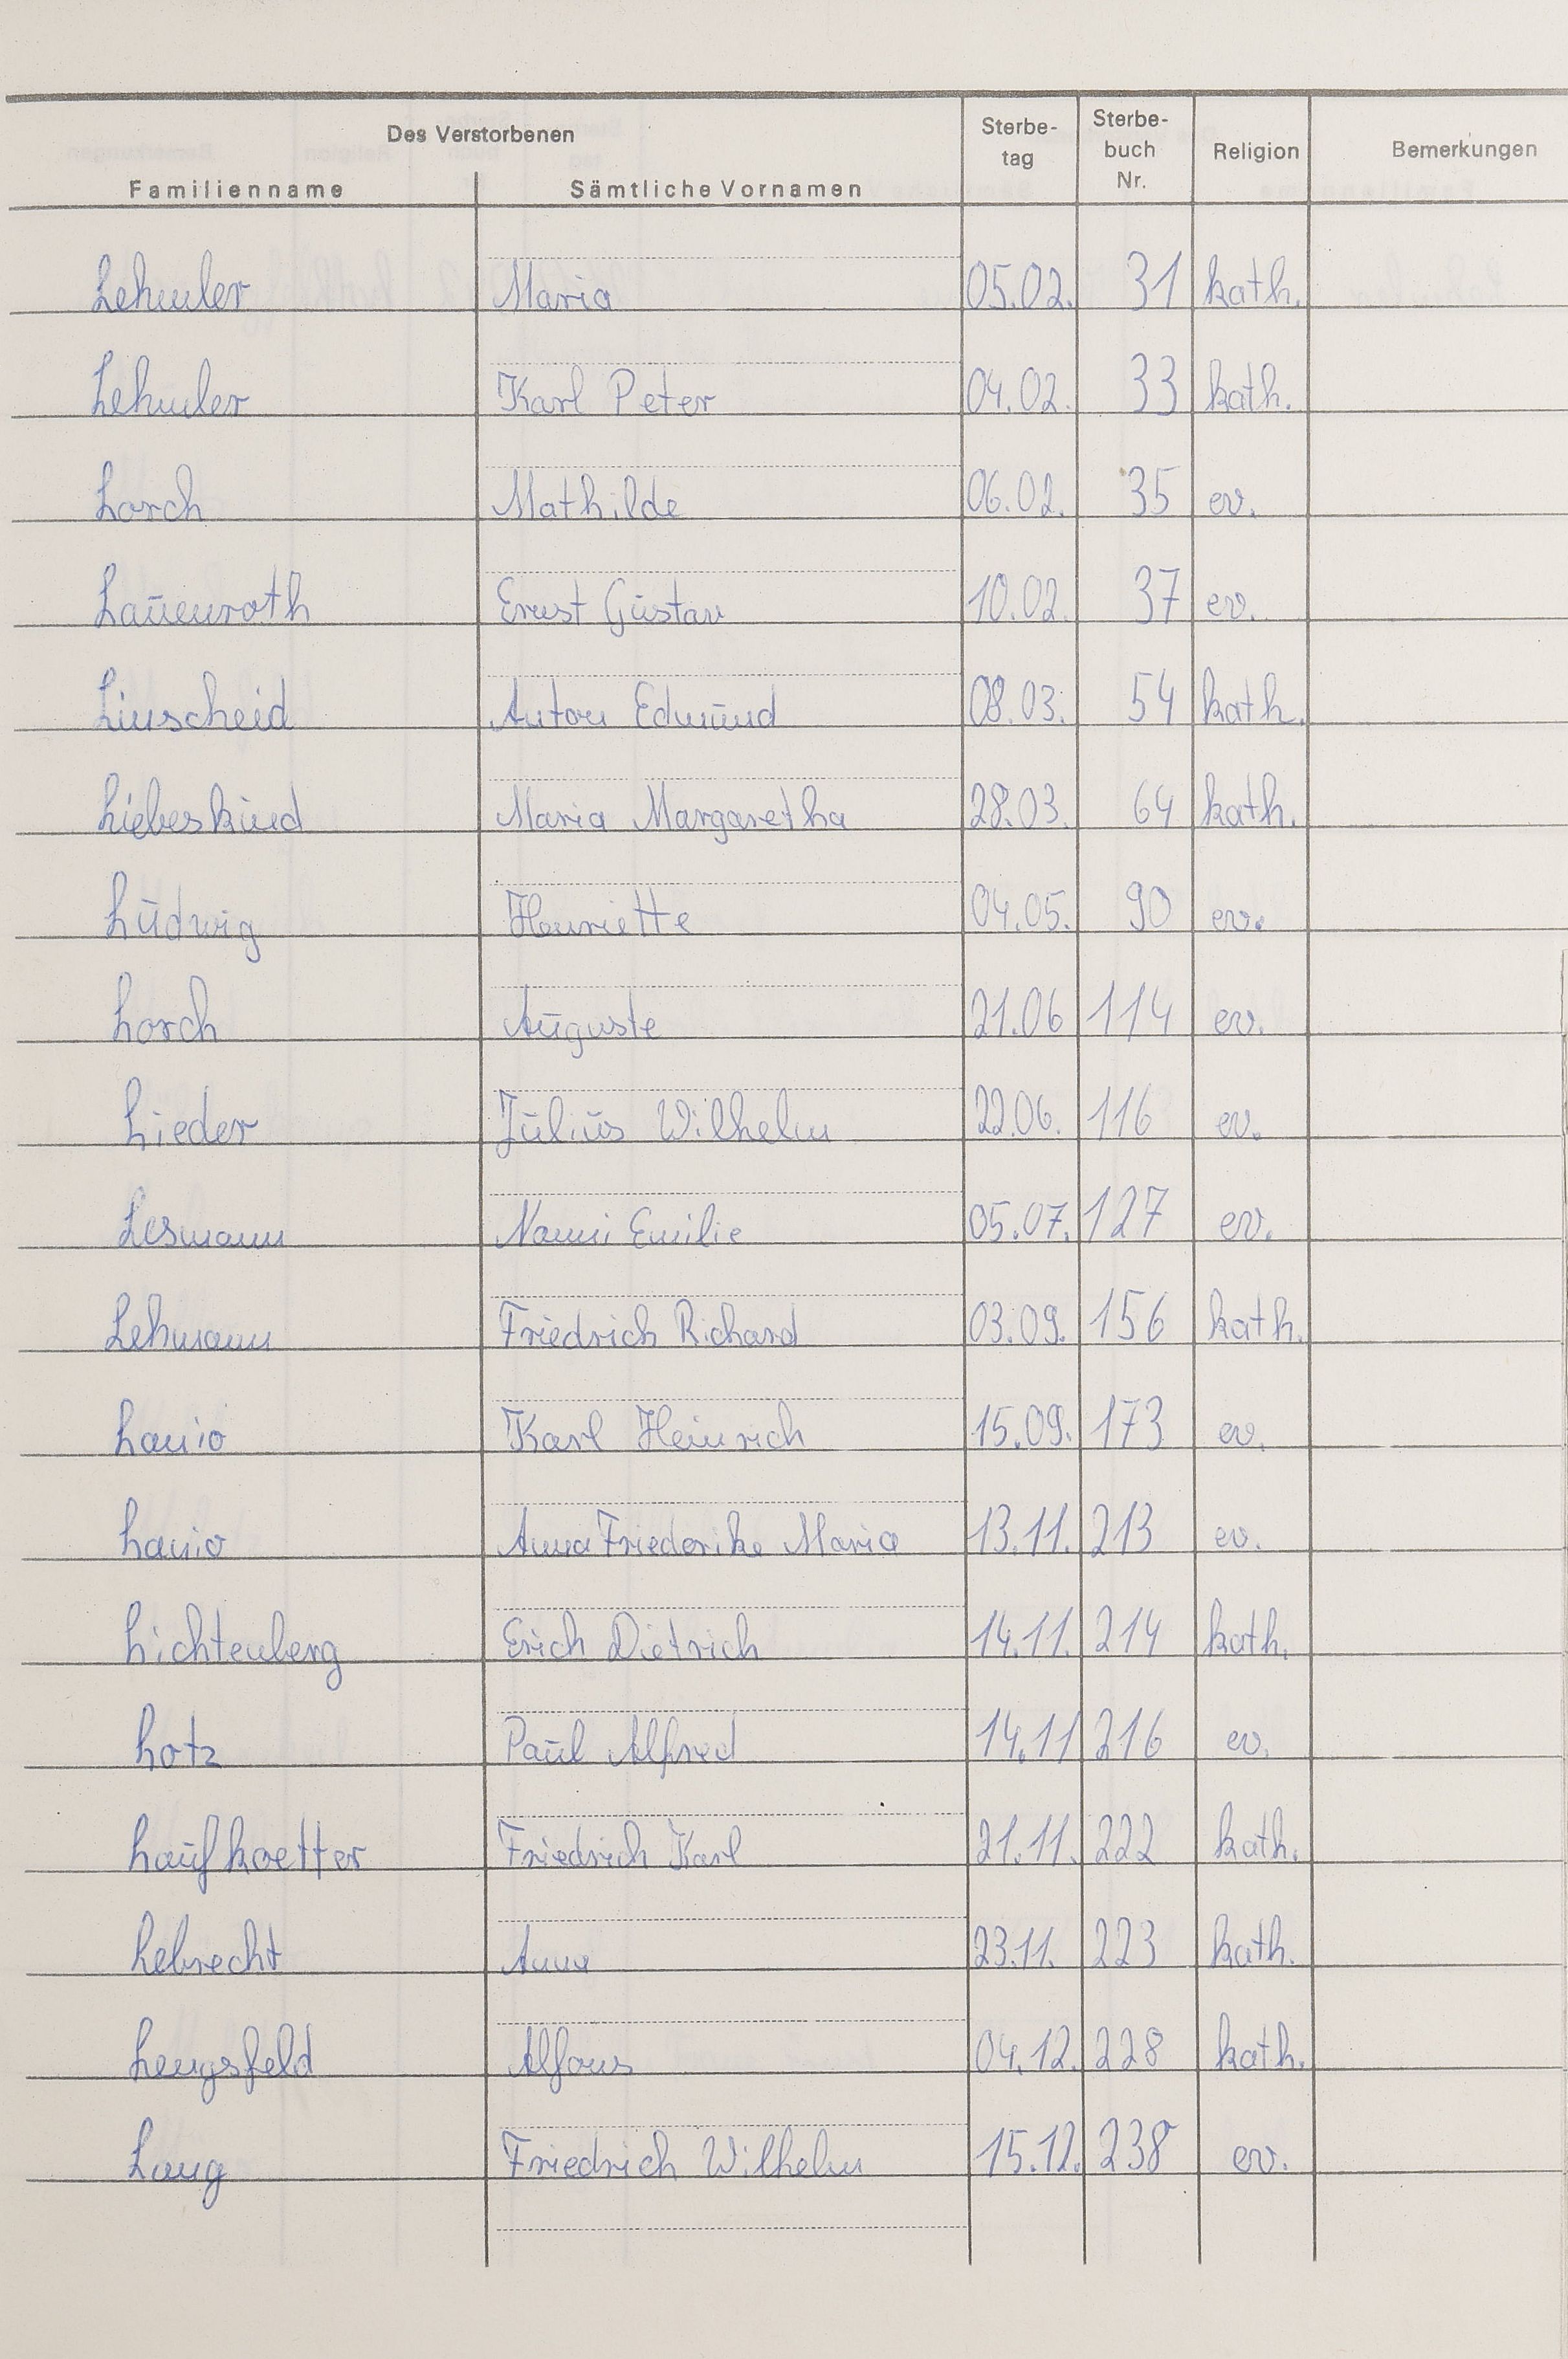 Des Verstorbenen
Familienname Sämtliche Vornamen Sterbe-tag Sterbe-buch Nr. Religion Bemerkungen
Lehmler Maria 05.02. 31 kath.
Lehmler Karl Peter 04.02. 33 kath.
Lorch Mathilde 06.02. 35 ev.
Lauenroth Ernst Gustav 10.02. 37 ev.
Linscheid Anton Edmund 08.03. 54 kath.
Liebeskind Maria Margaretha 28.03. 64 kath.
Ludwig Henriette 04.05. 90 ev.
Lorch Auguste 21.06 114 ev.
Lieder Julius Wilhelm 22.06. 116 ev.
Lesmann Nanni Emilie 05.07. 127 ev.
Lehmann Friedrich Richard 03.09. 156 kath.
Lanio Karl Heinrich 15.09. 173 ev.
Lanio Anna Friederike Maria 13.11. 213 ev.
Lichtenberg Erich Dietrich 14.11. 214 kath.
Lotz Paul Alfred 14.11 216 ev.
Laufkoetter Friedrich Karl 21.11. 222 kath.
Lebrecht Anna 23.11. 223 kath.
Lengsfeld Alfons 04.12. 228 kath.
Lang Friedrich Wilhelm 15.12. 238 ev.